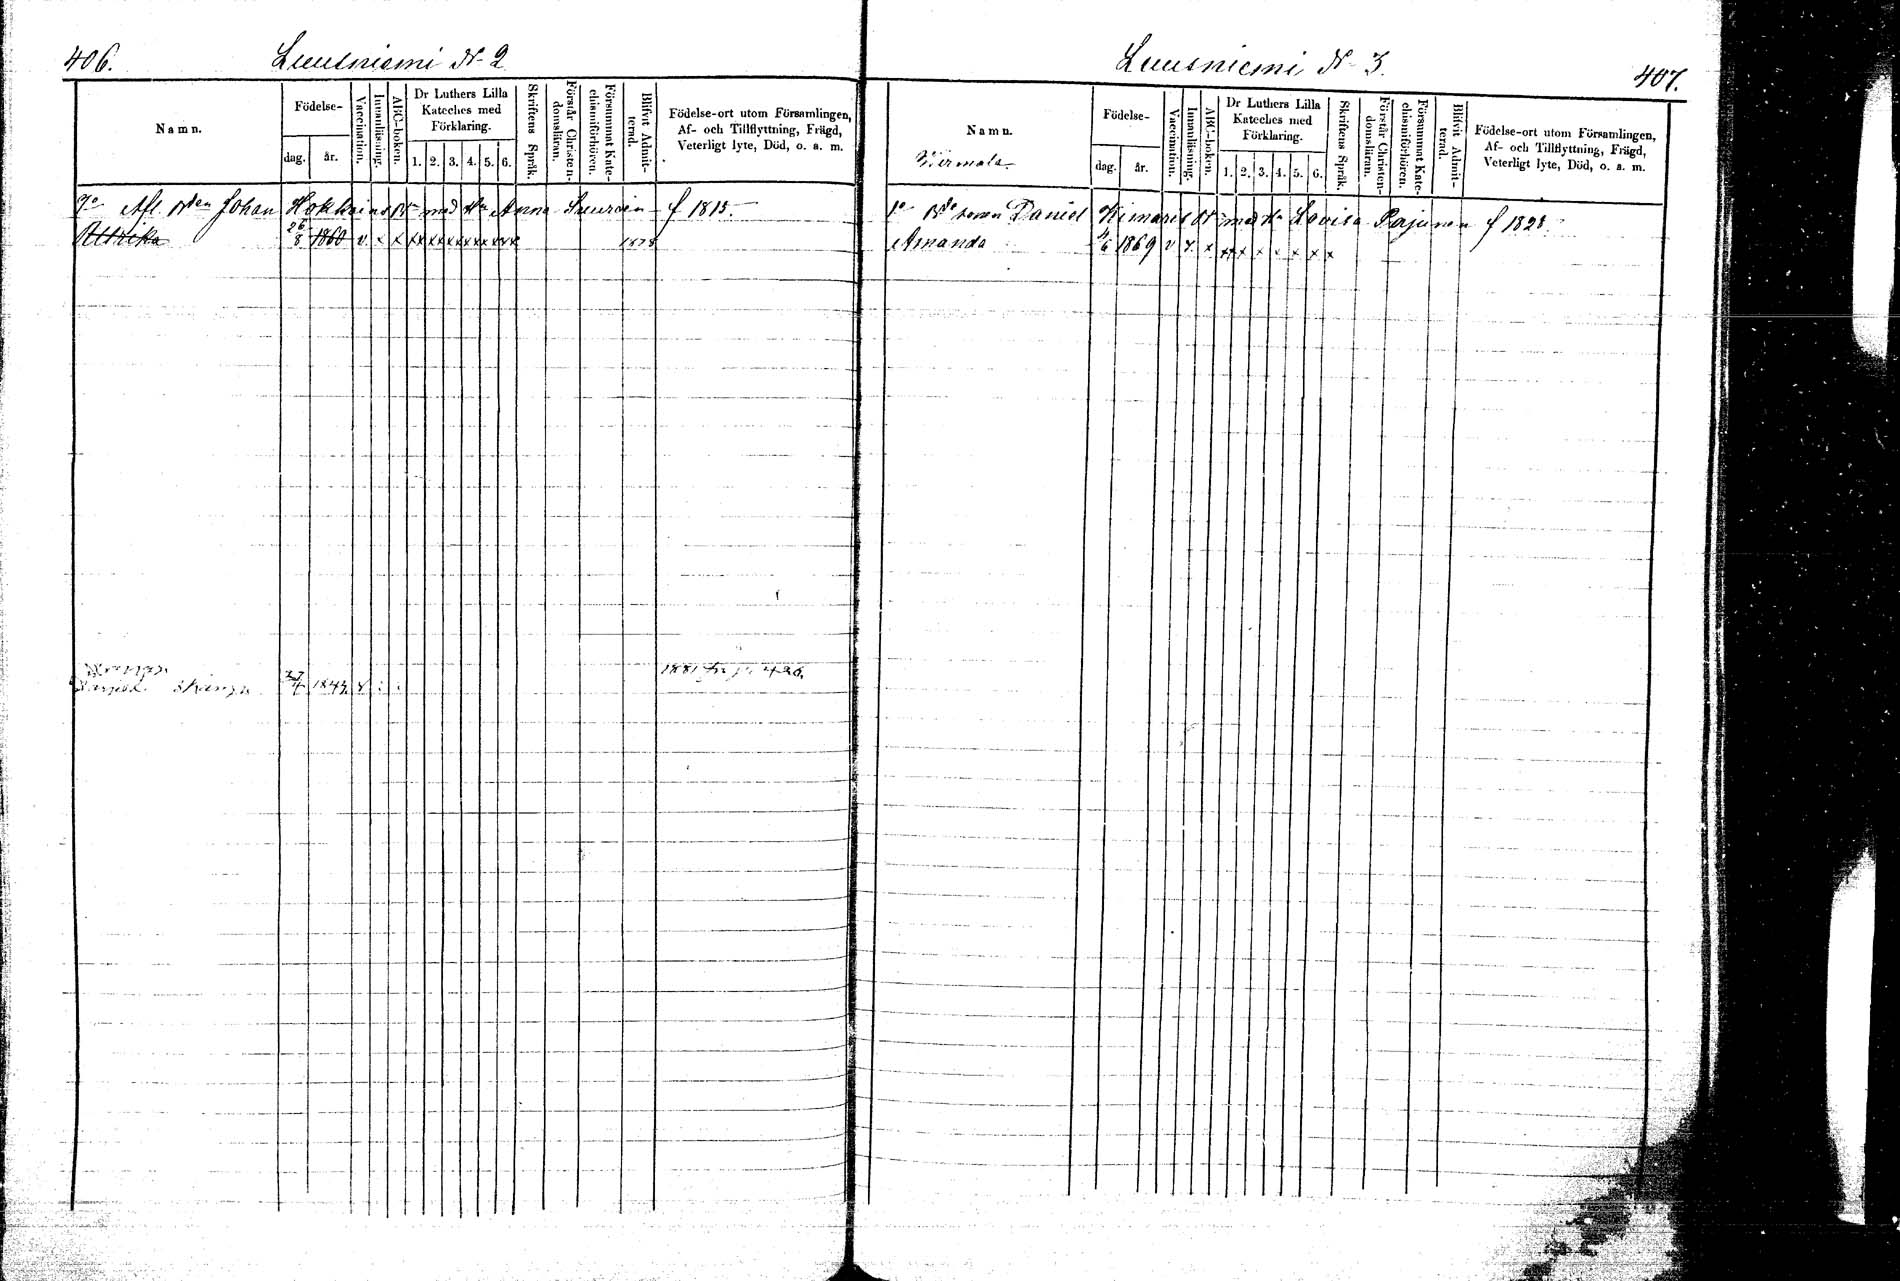 406. Luusniemi N 2
Namn.
Födelse-
dag. år.
Vaccination.
Innanläsning.
ABC-boken.
Dr Luthers Lilla
Kateches med
Förklaring.
1. 2. 3. 4. 5. 6.
Skriftens Språk.
Förstår Christen-
domsläran.
Försummat Kate-
chismiförhören.
Blifvit Admit-
terad.
Födelse-ort utom Församlingen,
Af- och Tillflyttning, Frägd,
Veterligt lyte, Död, o. a. m.
Afl. Johan med Anna f 1815.
Ulrika 26/8 1860 v x x xx xx xx xx xx xx 1878
1881 fr p. 426.
27/4 1843 v
Luusniemi N 3. 407.
Namn.
Wirmala
Födelse-
dag. år.
Vaccination.
Innanläsning.
ABC-boken.
Dr Luthers Lilla
Kateches med
Förklaring.
1. 2. 3. 4. 5. 6.
Skriftens Språk.
Förstår Christen-
domsläran.
Försummat Kate-
chismiförhören.
Blifvit Admit-
terad.
Födelse-ort utom Församlingen,
Af- och Tillflyttning, Frägd,
Veterligt lyte, Död, o. a. m.
Daniel med Lovisa Parjunen f 1828.
Amanda 4/6 1869 v x x x x x x x